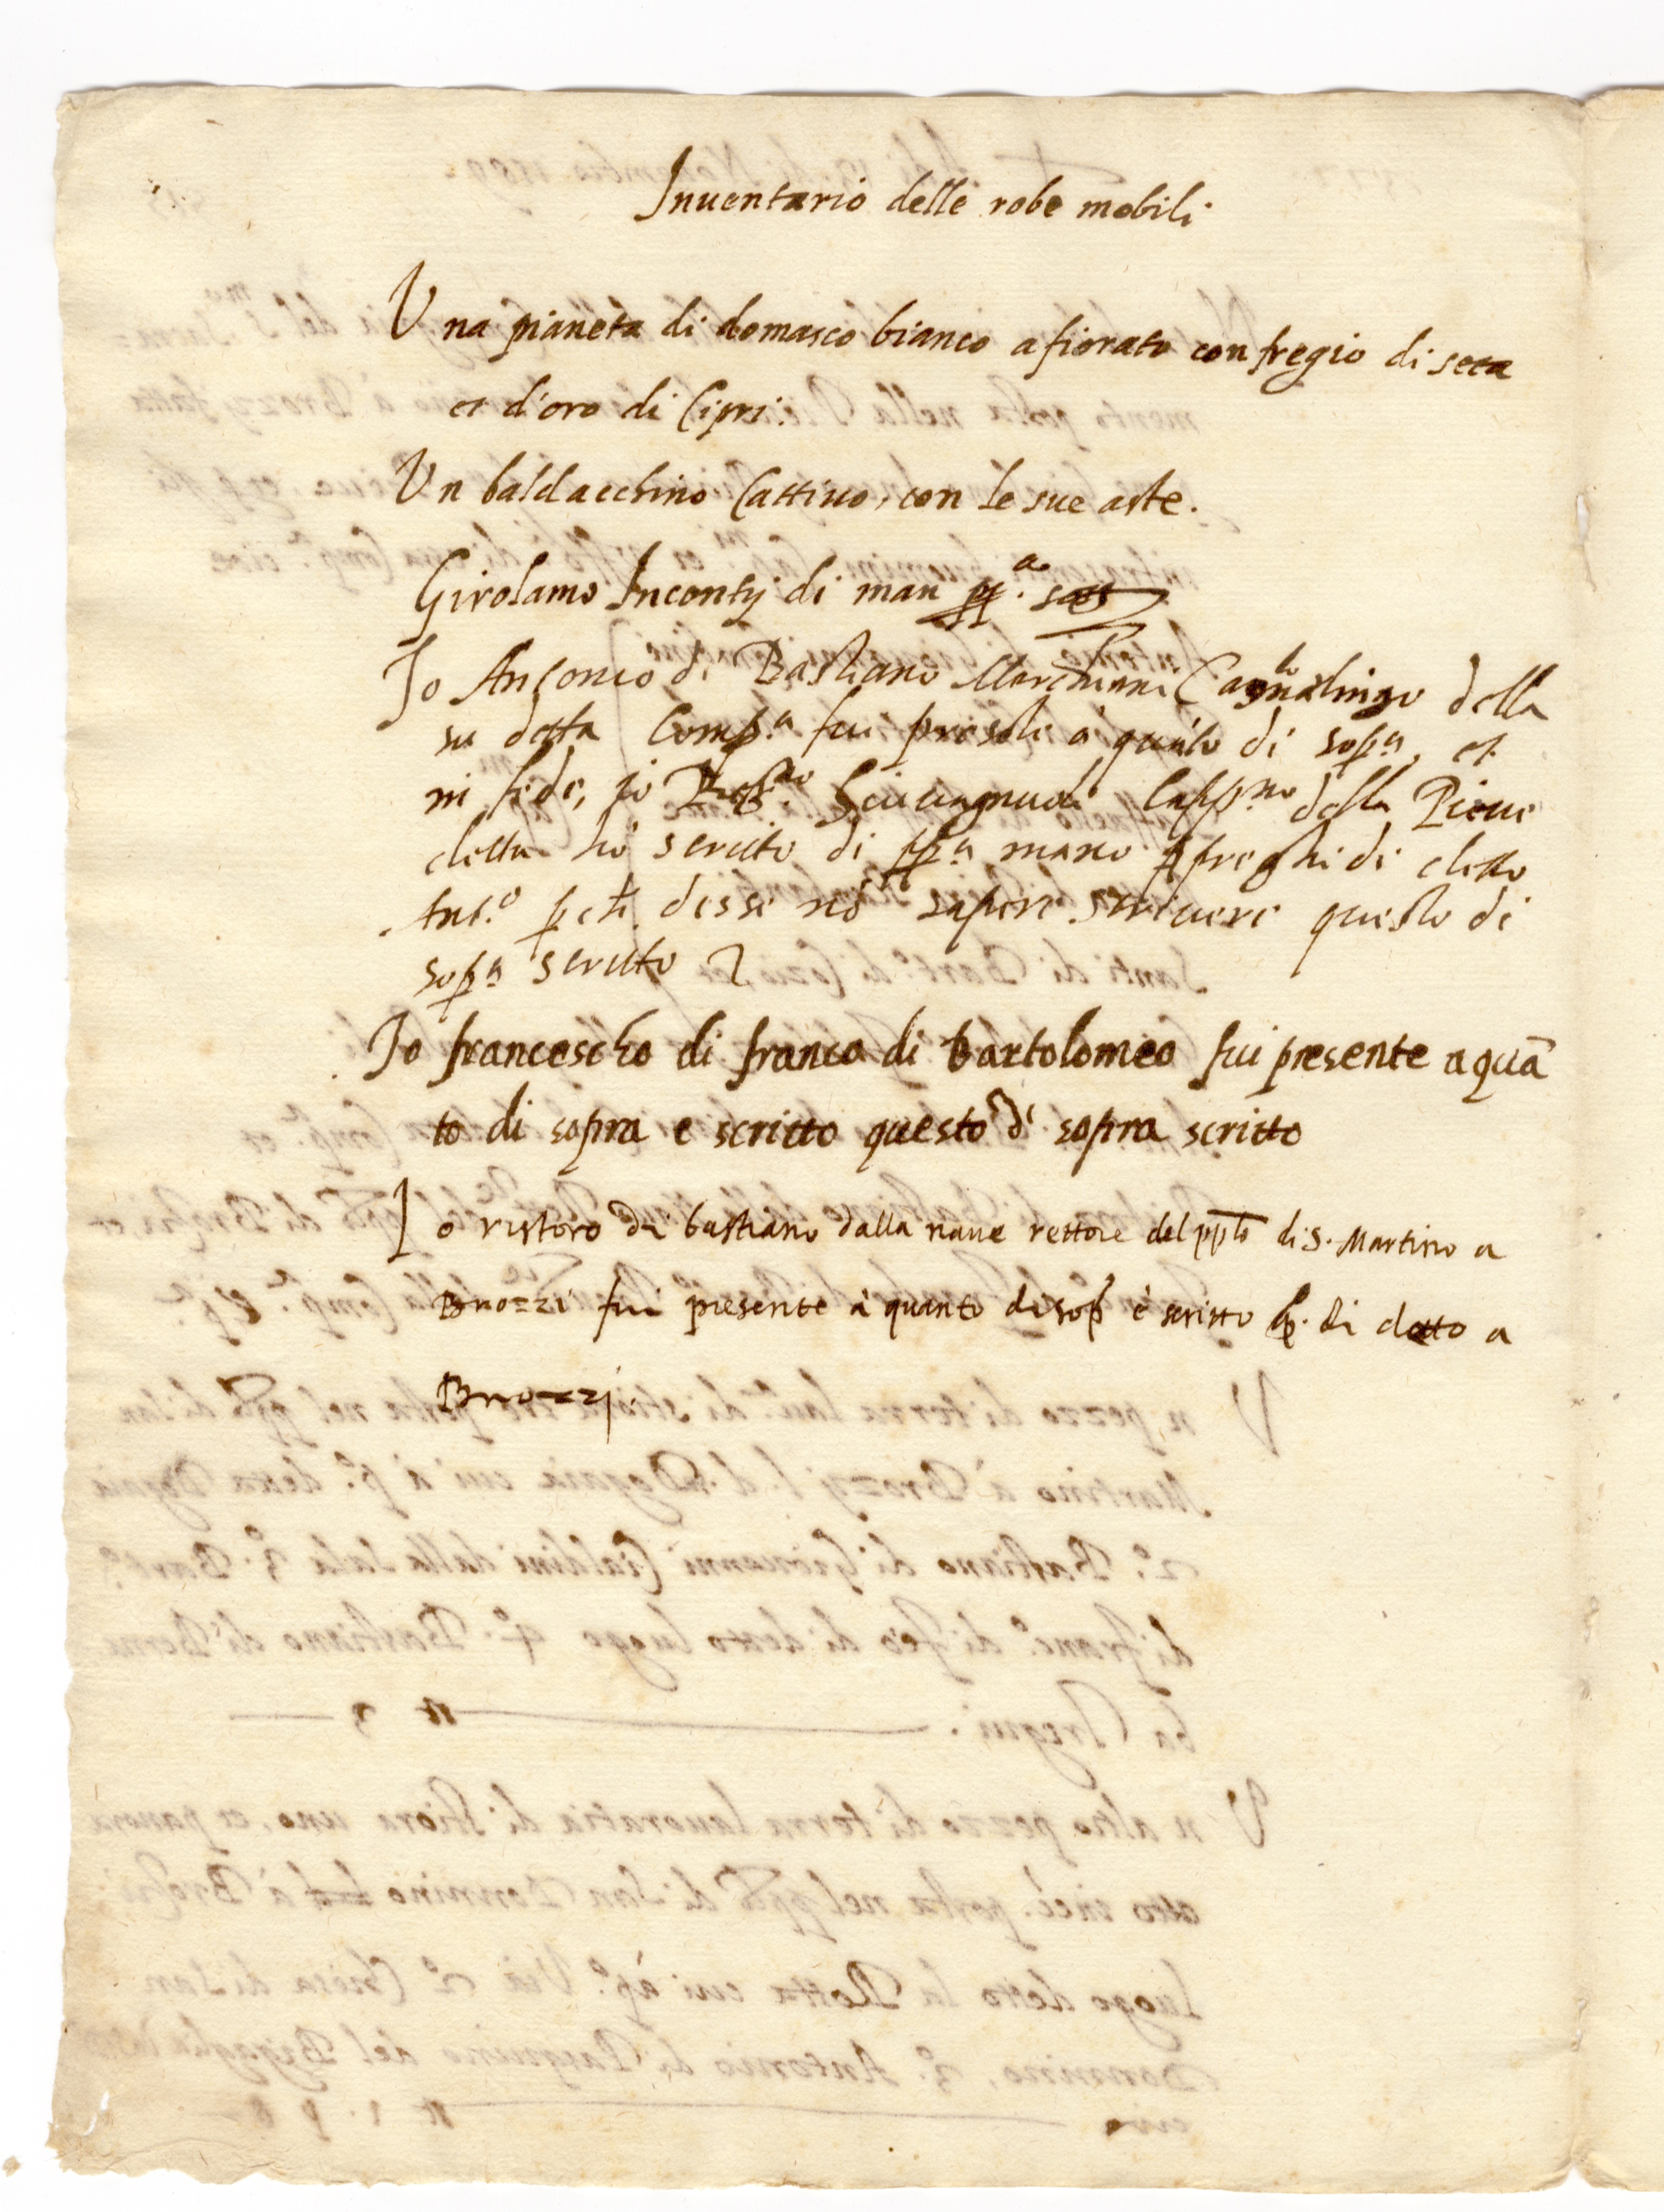 Inuentario delle robe mobili.
Una pianeta di domasco bianco afiorato con fregio di seta
et d'oro di Cipri.
Un baldacchino Cattiuo, con le sue aste.
Girolamo Incontrj di man pp.a
Io Antonio di Bastiano Marchiani della
su detta Comp.a fui presete à quáto di sop.a, et
in fede, io Capp.no della Pieue
detta hò scritto di pp.a mano p preghi di detto
Ant.o p ch disse nō sapere scriuere questo di
sop.a scritto
Io francescho di franco di bartolomeo fui presente a quā
to di sopra e scritto questo dì sopra scritto
Io ristoro di bastiano dalla naue rettore del pplo di S. Martino a
Brozzi fui presente à quanto di sop è scritto di detto a
Brozzj.